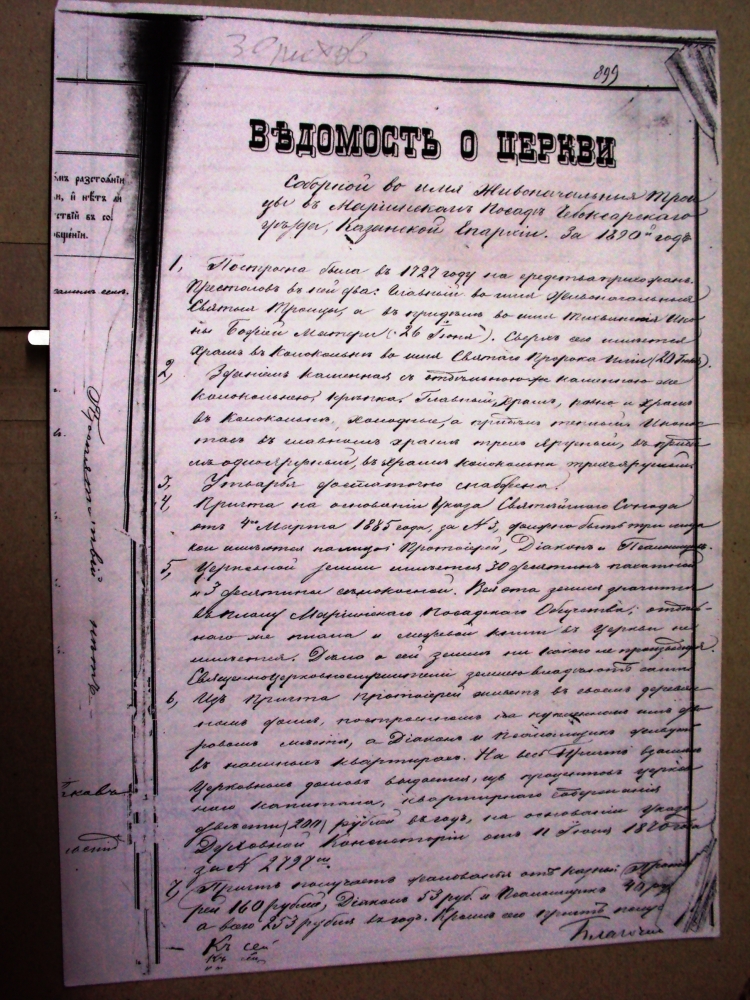 899
ВѢДОМОСТЬ О ЦЕРКВИ
Соборной во имя Живоначальныя Трои
цы въ Маріинскомъ Посадѣ Чебоксарскаго
уѣзда, Казанской Епархіи. За 1890й годъ
1, Построена была въ 1727 году на средства прихожанъ.
Престоловъ въ ней два: главный во имя Живоначальныя
Святыя Троицы, а въ придѣлѣ во имя Тихвинскія Ико
ны Божіей Матери (26 Іюня). Сверхъ сего имѣется
храмъ въ Колокольнѣ во имя Святаго Пророка Иліи (20 Іюля).
2, Зданіемъ каменная съ отдѣльною же каменною же
колокольнею, крѣпка. Главный храмъ, равно и храмъ
въ Колокольнѣ, холодные, а придѣлъ теплый. Иконо
стасъ въ главномъ храмѣ трехъ ярусный, въ придѣ
лѣ одноярусный, въ храмѣ колокольни трехъярусный
3, Утварью достаточно снабжена.
4, Причта на основаніи Указа Святѣйшаго Синода
отъ 4го Марта 1885 года, за №3, должно быть три лица
кои имѣются на лицо: Протоіерей, Діаконъ и Псаломщикъ.
5, Церковной земли имѣется 30 десятинъ пахатной
и 3 десятины сѣнокосной. Вся эта земля значится
въ плану Маріинскаго Посадскаго Общества; отдѣль-
наго же плана и межевой книги въ Церкви не
имѣется. Дѣла о сей земли ни какого не производится.
Священноцерковнослужители землею владѣютъ сами
6, Изъ Причта Протоіерей живетъ въ своемъ деревян
номъ домѣ, построенномъ на купленномъ имъ да
ровомъ мѣстѣ, а Діаконъ и Псаломщикъ живутъ
въ наемныхъ квартирахъ. На весь Причтъ взамѣнъ
Церковныхъ домовъ выдается, изъ процентовъ церков
наго капитала, квартирнаго содержанія
двѣсти (200) рублей въ годъ, на основаніи указа
Духовной Консисторіи отъ 11 Іюня 1876 года
за № 2797мъ.
7, Причтъ получаетъ жалованья отъ казны: Протоі
рей 160 рублей, Діаконъ 53 руб. и Псаломщикъ 40 ру
а всего 253 рубля въ годъ. Кромѣ сего причтъ полу
Благочин
Къ сей
нъ разстояніи
и нѣтъ ли
ствій въ со
общеніи.
Препятствій нѣтъ